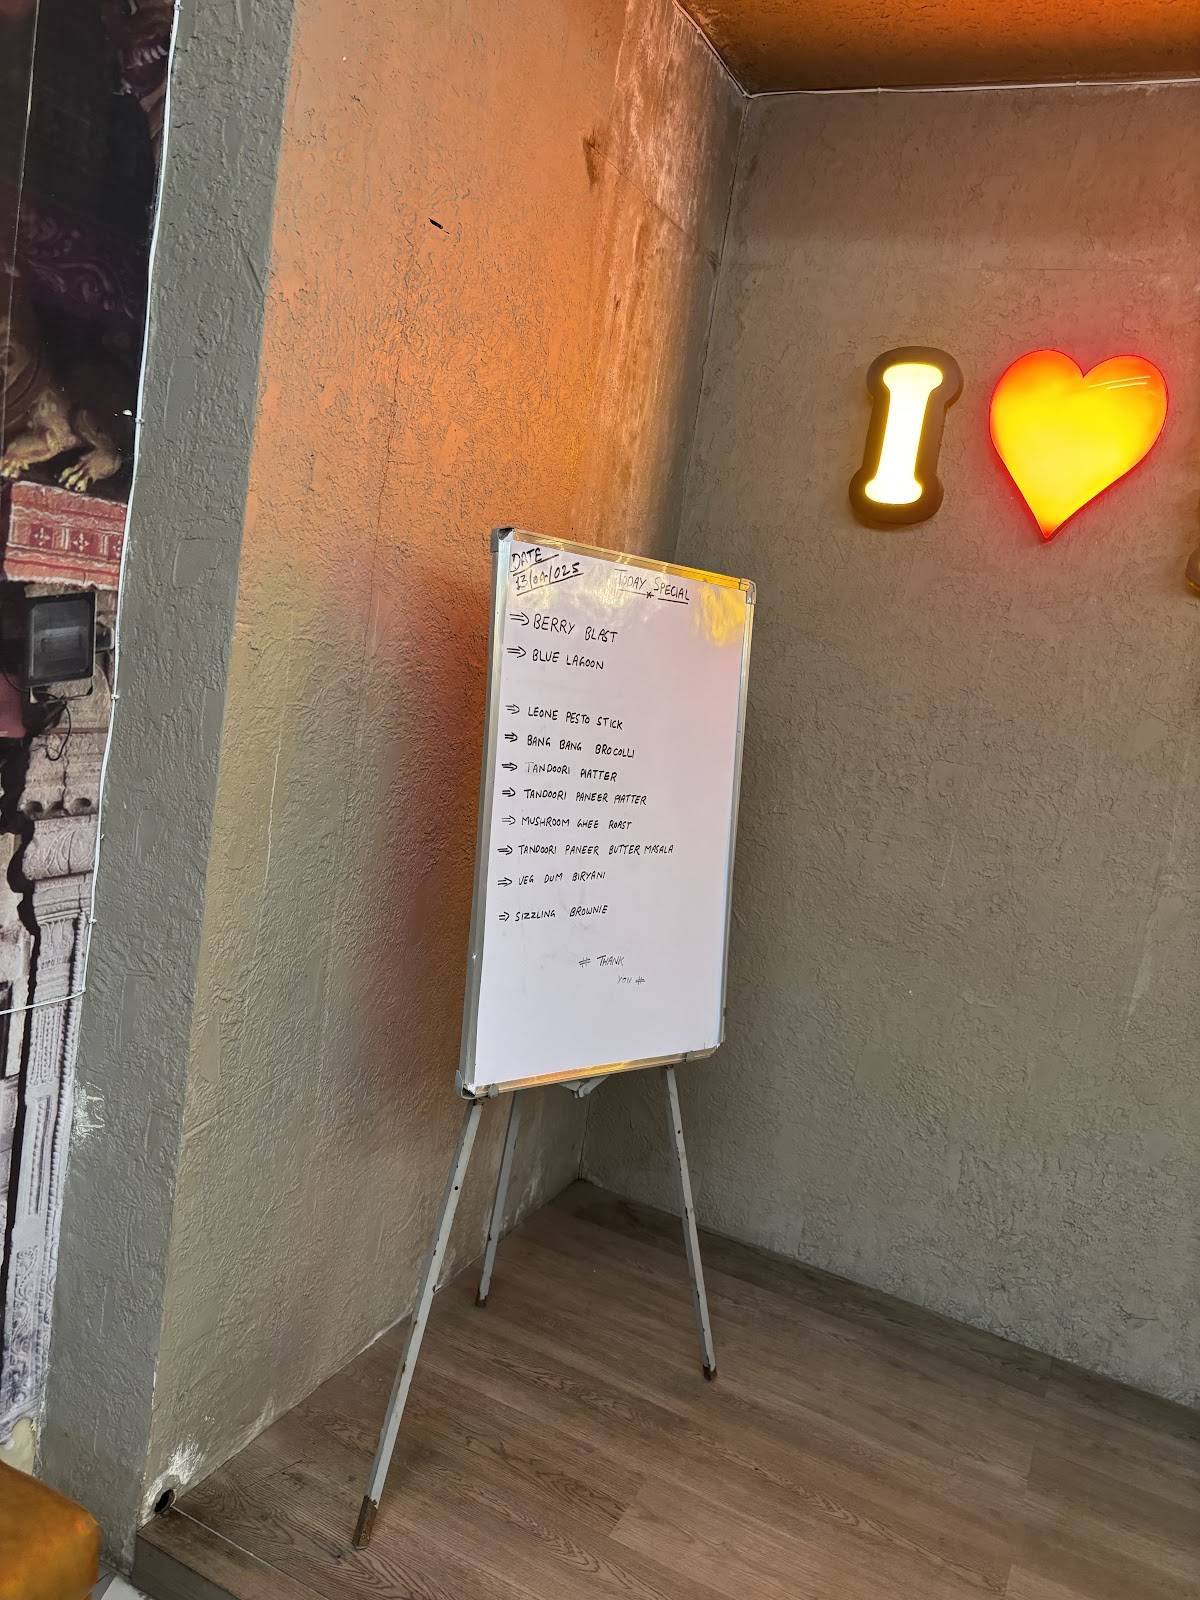 DATE
TODAY SPECIAL
⇒ BERRY BLAST
⇒ BLUE LAGOON
⇒ LEONE PESTO STICK
⇒ BANG BANG BROCOLLI
⇒ TANDOORI PLATTER
⇒ TANDOORI PANEER PLATTER
⇒ MUSHROOM GHEE ROAST
⇒ TANDOORI PANEER BUTTER MASALA
⇒ VEG DUM BIRYANI
⇒ SIZZLING BROWNIE
# THANK
YOU #
I